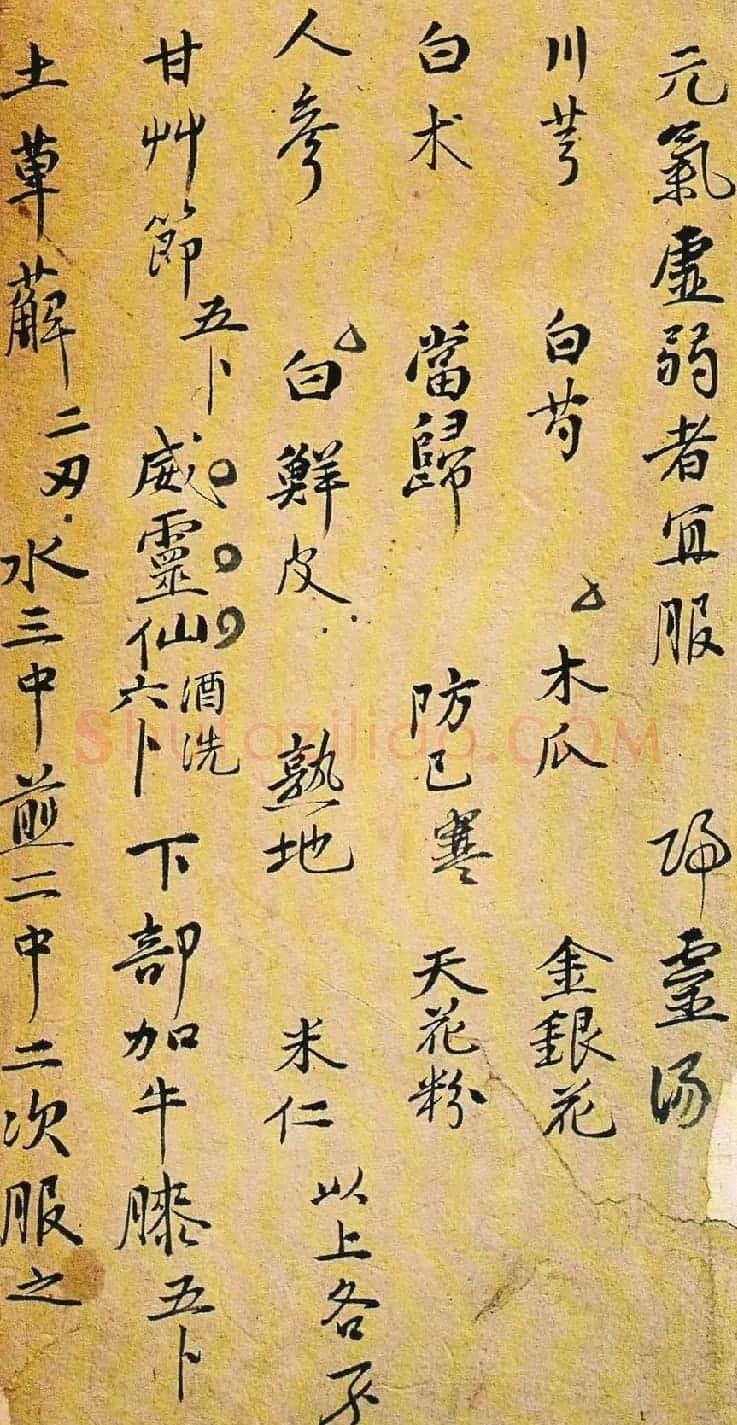 元氣虛弱者宜服 歸霊汤
川芎 白芍 木瓜 金銀花
白术 當歸 防已寒 天花粉
人參 白鮮皮 熟地 米仁 以上各
甘艸節五卜 威靈仙六卜酒洗 下部加牛膝五卜
土萆薢二刄 水三中煎二中二次服之
Shufaziliao.COM